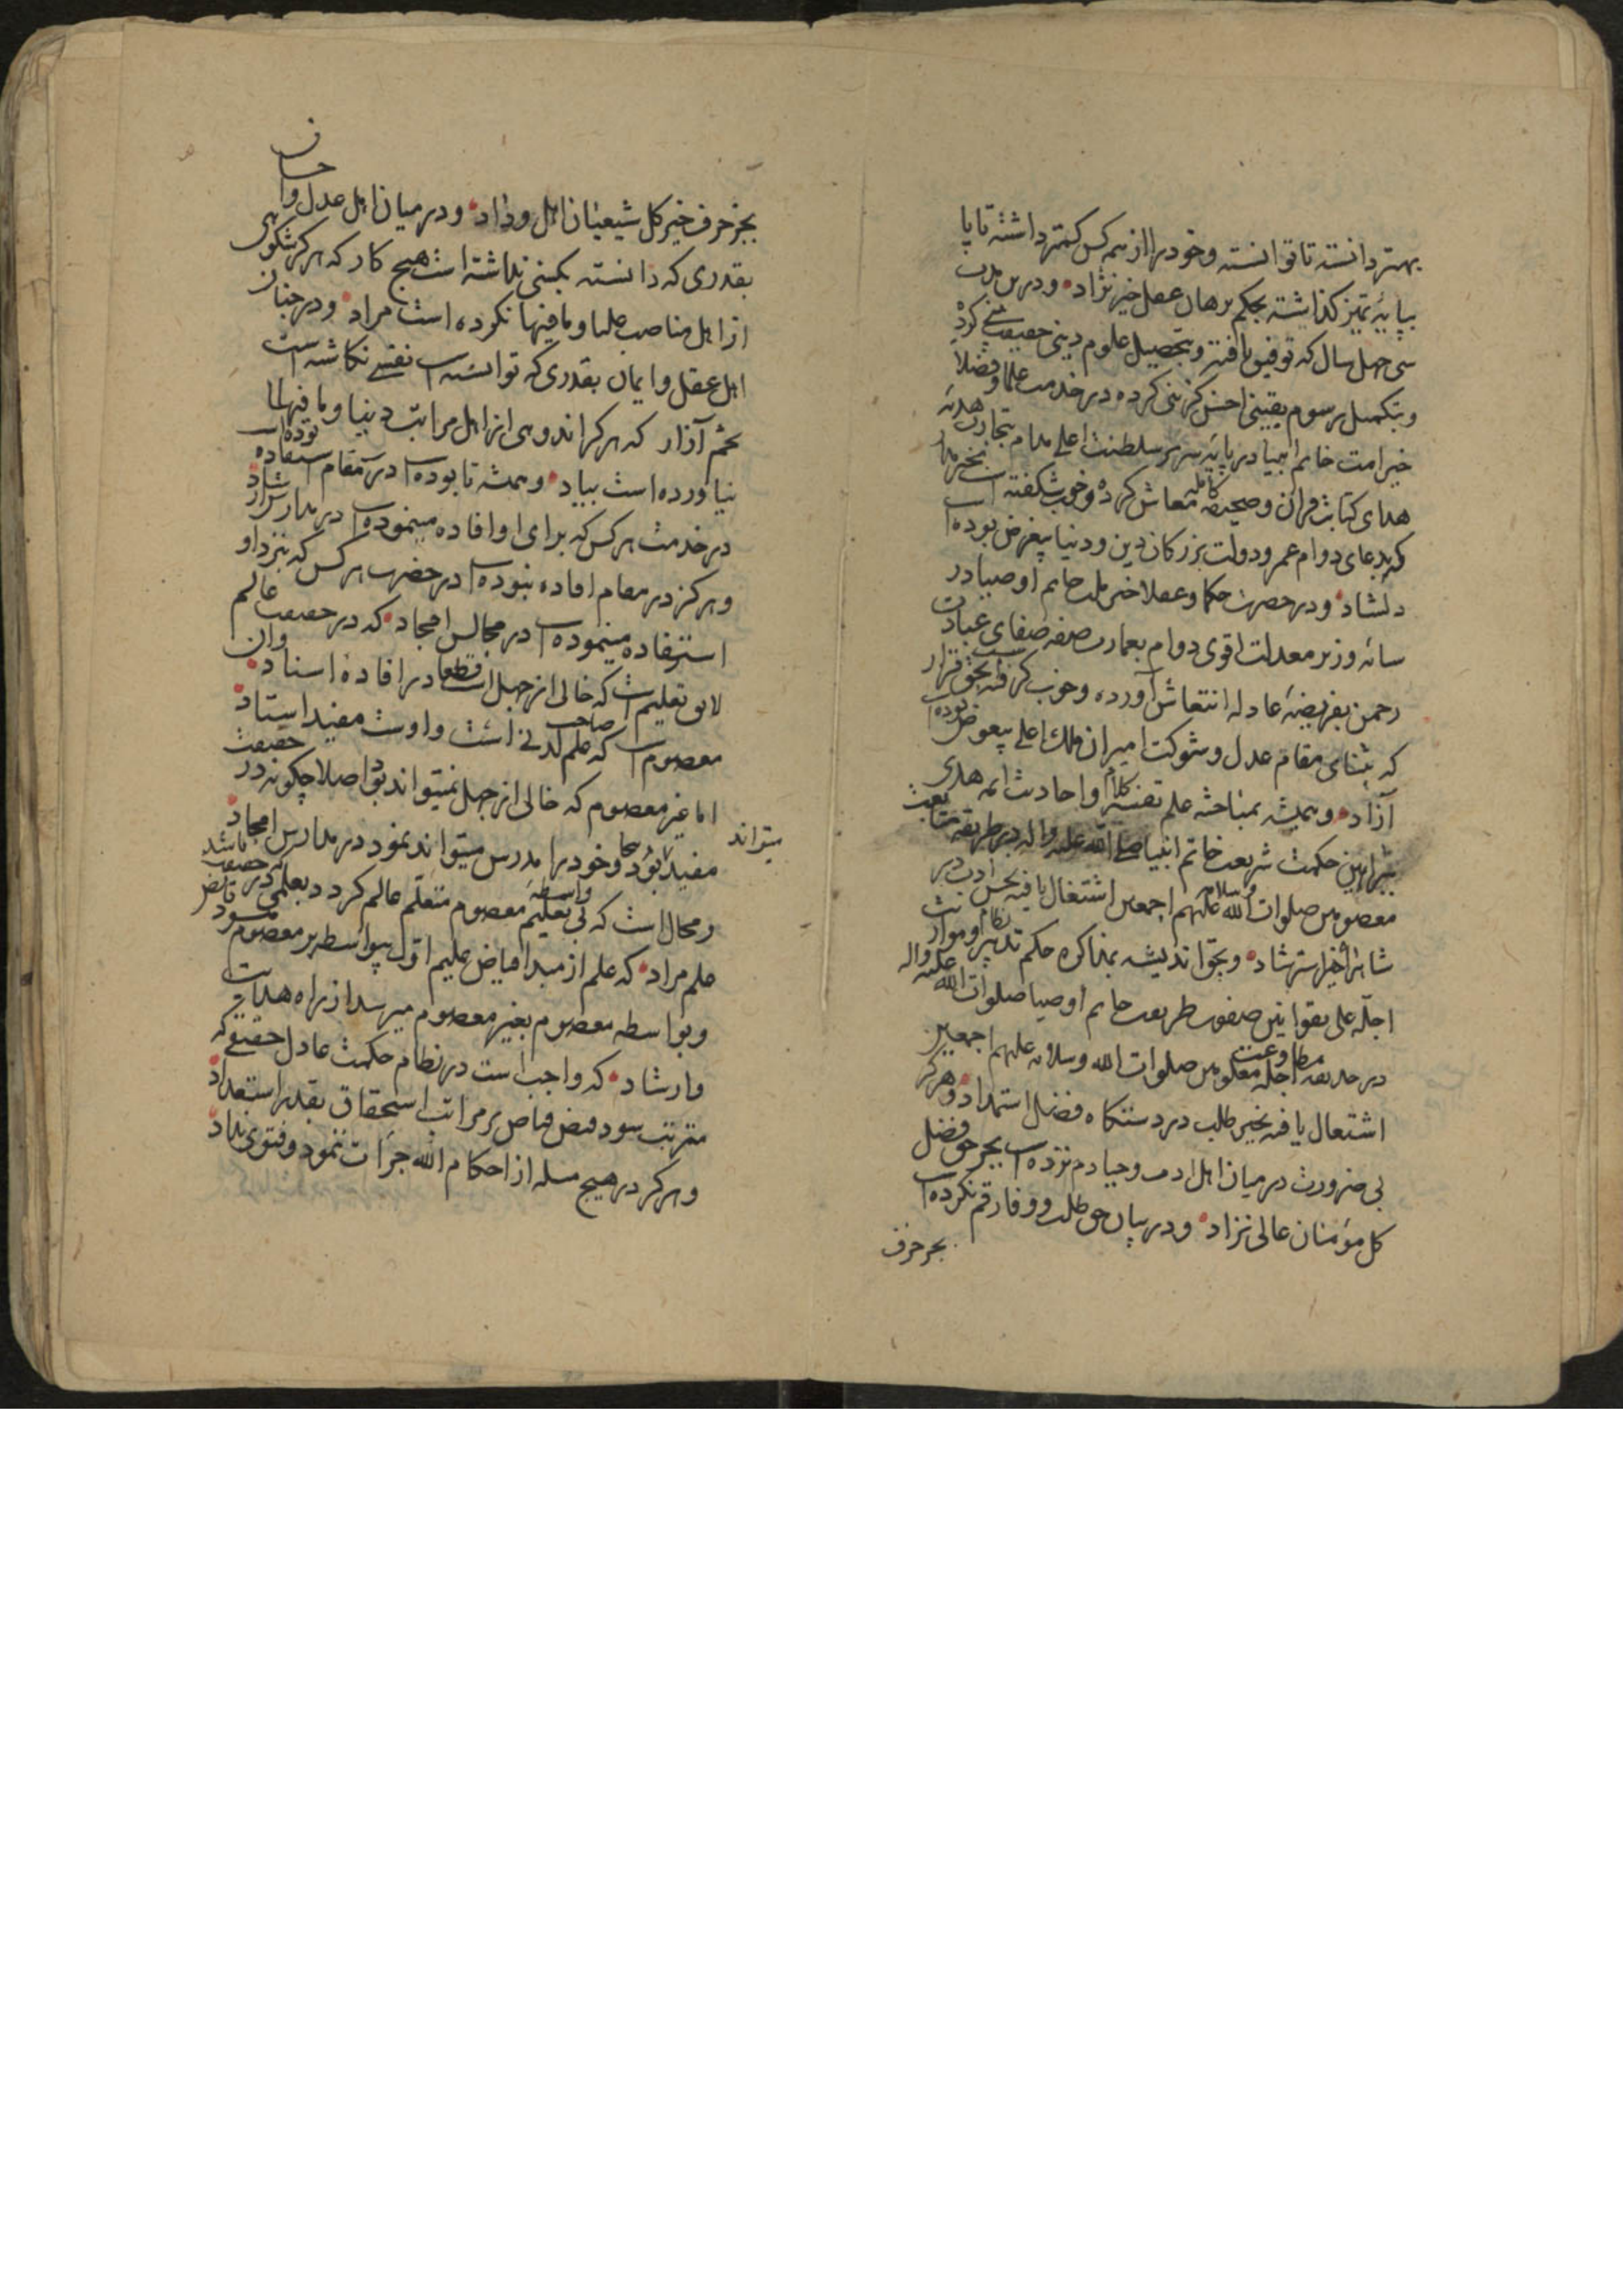 بهتر دانسته تا توانسته و خود را از همه کس کمتر داشته تا پا
بپایهٔ تمیز گذاشته بحکم برهان عقل خیر نژاد و درین مدت
سی چهل سال که توفیق یافته و بتحصیل علوم دینی حقیقت کرده
و بتکمیل رسوم یقینی احسن گزینی کرده در خدمت علما و فضلا
خیر امت خاتم انبیا در پایهٔ سریر سلطنت اعلی مدام بتجارت هدیهٔ
هدای کتابت قران و صحیفه کامله معاش کرده و خوب شکفته است
که بدعای دوام عمر و دولت بزرگان دین و دنیا بیغرض بوده است
دلشاد و در حضرت حکما و عقلا خیر ملت خاتم اوصیا در
سایه وزیر معدلت اقوی دوام بعمارت صفهٔ صفای عبادت
رحمن بفریضهٔ عادله انتعاش آورده و خوب گرفته بحق قرار
که بثنای مقام عدل و شوکت امیران ملک اعلی بیغرض بوده است
آزاد و همیشه بمباحثه علم تفسیر کلام و احادیث ائمه هدی
ببراهین حکمت شریعت خاتم انبیا صلی الله علیه واله در طریقه متابعت
معصومین صلوات الله و سلامه علیهم اجمعین اشتغال یافته بحسن ادب در
شاهراه خیر استرشاد و بحق اندیشه بمذاکره حکم تدبیر نظام او موارث
اجله علی بقوانین صفوت طریقت خاتم اوصیا صلوات الله علیه واله
در حدیقه مطاوعت اجله معصومین صلوات الله و سلامه علیهم اجمعین
اشتغال یافته بخیر طلب در دستگاه فضل استمداد و هرگز
بی ضرورت در میان اهل ادب و حیا دم نزده است بجز حق فضل
کل مؤمنان عالی نژاد و در بیان حق طلب و وفا رقم نکرده است
بجز حرف
بجز حرف خیر کل شیعیان اهل وداد و در میان اهل عدل و احسان
بقدری که دانسته بکسی نداشته است هیچ کار که هرگز شکوهی
از اهل مناصب علیا و مافیها نکرده است مراد و در جنان
اهل عقل و ایمان بقدری که توانسته است نقشی نکاشته است
تخم آزار که هرگز اندوهی از اهل مراتب دنیا و مافیها
نیاورده است بیاد و همیشه تا بوده است در مقام استفاده بوده است
در خدمت هر کس که برای او افاده مینموده است در مدارس ارشاد
و هرگز در مقام افاده نبوده است در حضرت هر کس که نزد او
استفاده مینموده است در مجالس امجاد که در حقیقت عالم
لایق تعلیم است که خالی از جهل است قطعا در افادهٔ اسناد و ان
معصوم است که صاحب علم لدنی است و اوست مفید استاد
اما غیر معصوم که خالی از جهل نمیتواند بود اصلا چگونه در حقیقت
میتواند
مفید بود و کجا خود را مدرس میتواند نمود در مدارس امجاد
و محال است که بی واسطهٔ تعلیم معصوم متعلم عالم گردد بعلمی که در حقیقت باشد
علم مراد که علم از مبدا فیاض علیم اول بیواسطه بر معصوم
و بواسطه معصوم بغیر معصوم میرسد از راه هدایت
و ارشاد که واجب است در نظام حکمت عادل حقیقی که
مترتب شود فیض فیاض بر مراتب استحقاق بقدر استعداد
و هرگز در هیچ مسله از احکام الله جرات ننمود و فتوی نداد